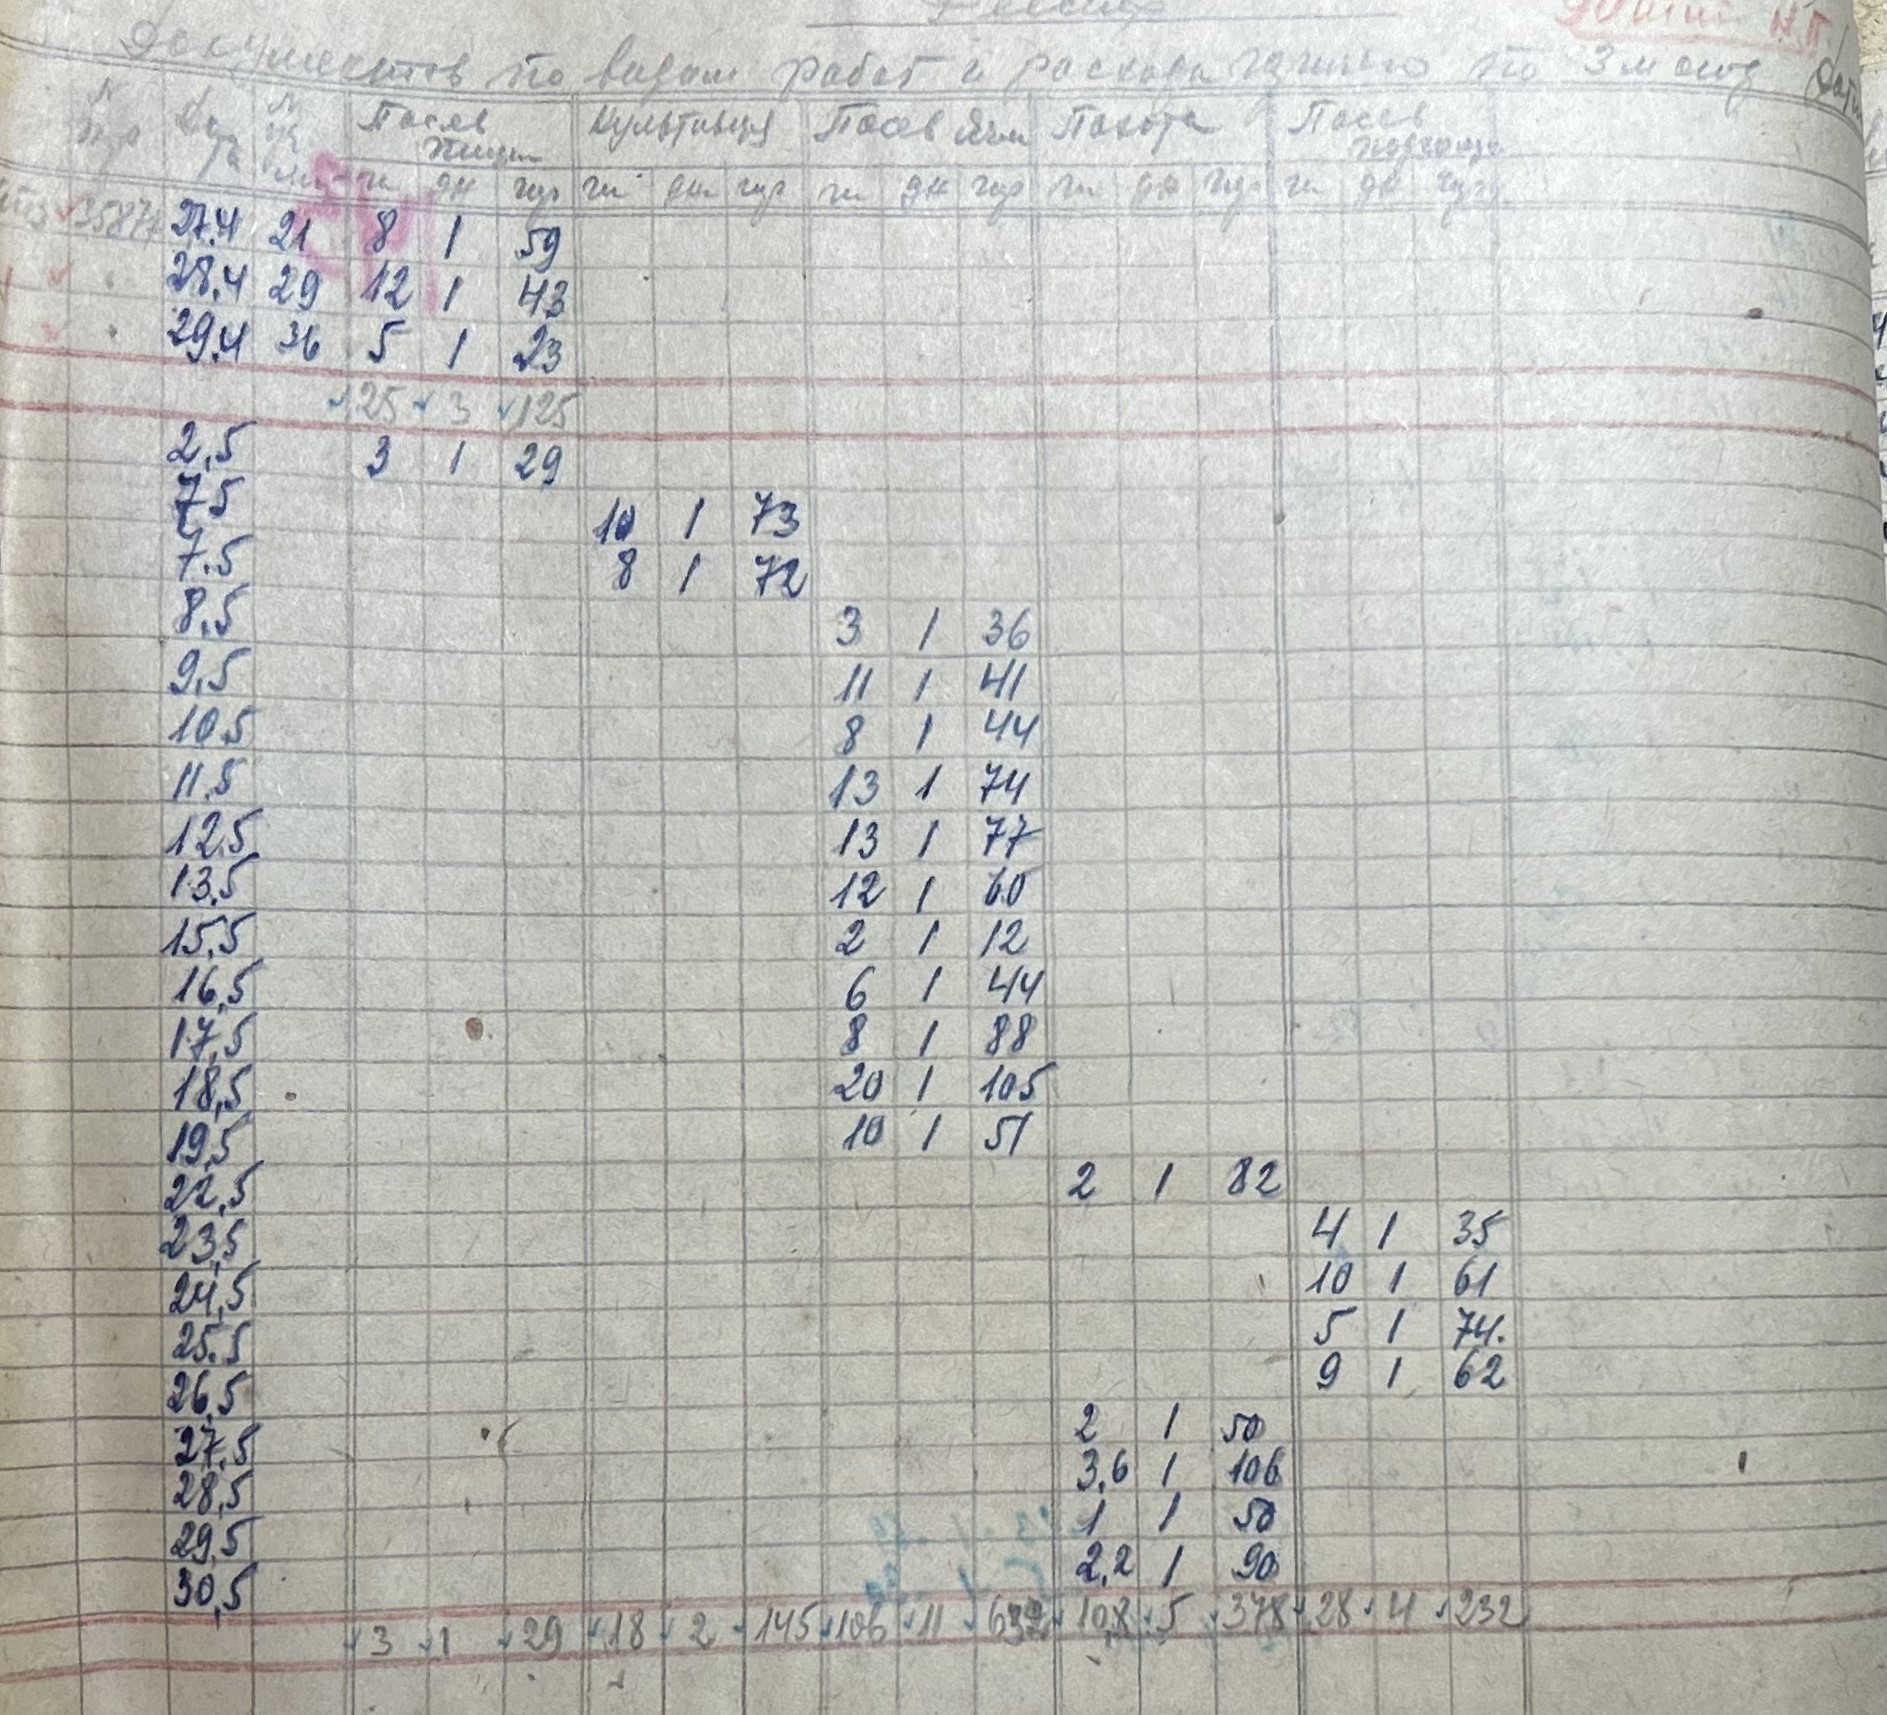 Реестр
Документов по видам работ и расхода горючего по 3 месяц
N Дата N Посев пшен Культивация Посев Ячм Пахота Посев
га дн гор га дн гор га дн гор га дн гор га дн гор
3587 27.4 21 8 1 59
28.4 29 12 1 43
29.4 36 5 1 23
25 3 125
2,5 3 1 29
7.5 10 1 73
7.5 8 1 72
8.5 3 1 36
9.5 11 1 41
10.5 8 1 44
11.5 13 1 74
12.5 13 1 77
13.5 12 1 60
15.5 2 1 12
16,5 6 1 44
17,5 8 1 88
18,5 20 1 105
19,5 10 1 51
22,5 2 1 82
23,5 4 1 35
24,5 10 1 61
25.5 5 1 74.
26,5 9 1 62
27.5 2 1 50
28,5 3,6 1 106
29.5 1 1 50
30,5 2,2 1 90
3 1 29 18 2 145 106 11 632 10,8 5 378 28 4 232